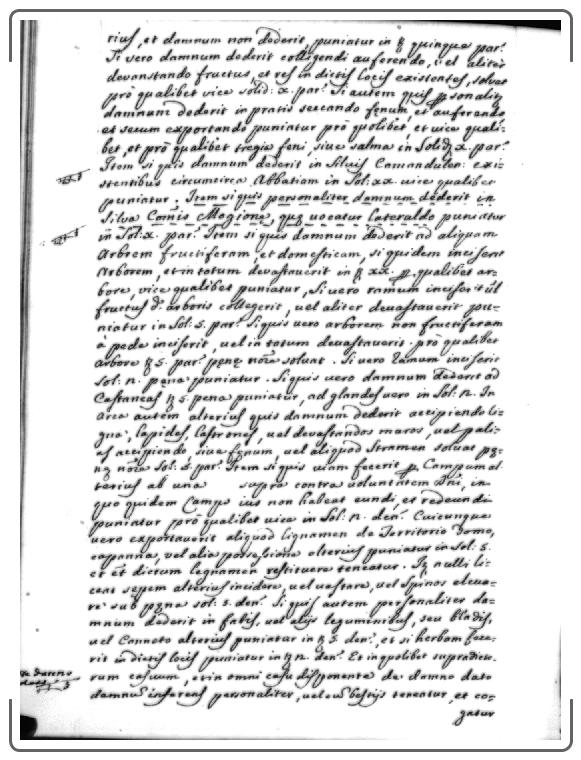 rius, et damnum non dederit, puniatur in ℔ quinque par:
Si vero damnum dederit colligendi auferendo, vel aliter
devastando fructus, et res in dictis locis existentes, solvat
prò qualibet vice solid: x. par: Si autem quis personalit:
damnum dederit in pratis secando fęnum, et auferendo
et secum exportando puniatur prò quolibet et vice quali-
bet, et prò qualibet tregia feni, sive salma in Solid: x. par:
Item si quis damnum dederit in Silvis Camandulen: exi-
stentibus circumcirca Abbatiam in Sol: xx. vice qualibet
puniatur. Item si quis personaliter damnum dederit in
Silva Comis Magione, quę vocatur Lateraldo puniatur
in Sol: x. par: Item si quis damnum dederit ad aliquam
Arborem fructiferam, et domesticam, si quidem inciserit
Arborem, et in totum devastaverit in ℔ xx. p. qualibet ar-
bore, vice qualibet puniatur, Si vero ramum inciserit vel
fructus d: arboris collegerit, vel aliter devastaverit pu-
niatur in Sol: 5. par: Si quis vero arborem non fructiferam
à pede inciserit, vel in totum devastaverit prò qualibet
arbore ℔ 5. par: pęnę noīe solvat. Si vero ramum inciserit
Sol: n. pęna puniatur. Si quis vero damnum dederit ad
Castaneas ℔ 5. pena puniatur, ad glandes vero in Sol: n. In
Area autem alterius quis damnum dederit accipiendo li-
gna, lapides, vel devastandos muros, vel pali-
es accipiendo, sive fęnum, vel aliquod stramen solvat pę-
nę noīe Sol: 5. par: Item si quis viam fecerit p. Campum al-
terius ab una supra contra voluntatem Dñi, in
quo quidem Campo ius non habeat eundi, et redeundi
puniatur prò qualibet vice in Sol: n. den: Cuicunque
vero exportaverit aliquod lignamen de Territorio Domo,
capanna, vel alia possessione alterius puniatur in Sol: 5.
et et dictum legnamen restituere teneatur. Itē nulli li-
ceat sepem alterius incidere, vel vastare, vel Spinos eleva-
re sub pęna sol: 5. den: Si quis autem personaliter da-
mnum dederit in fabis, vel alijs leguminibus, seu bladis,
vel Canneto alterius puniatur in ℔ 5. den:, et si herbam fece-
rit in dictis locis puniatur in ℔ n. den: Et in quolibet supradicto-
rum casuum, et in omni casu disponente de damno dato
damnū inferens personaliter, vel cū bestijs teneatur, et co-
gatur
De danno